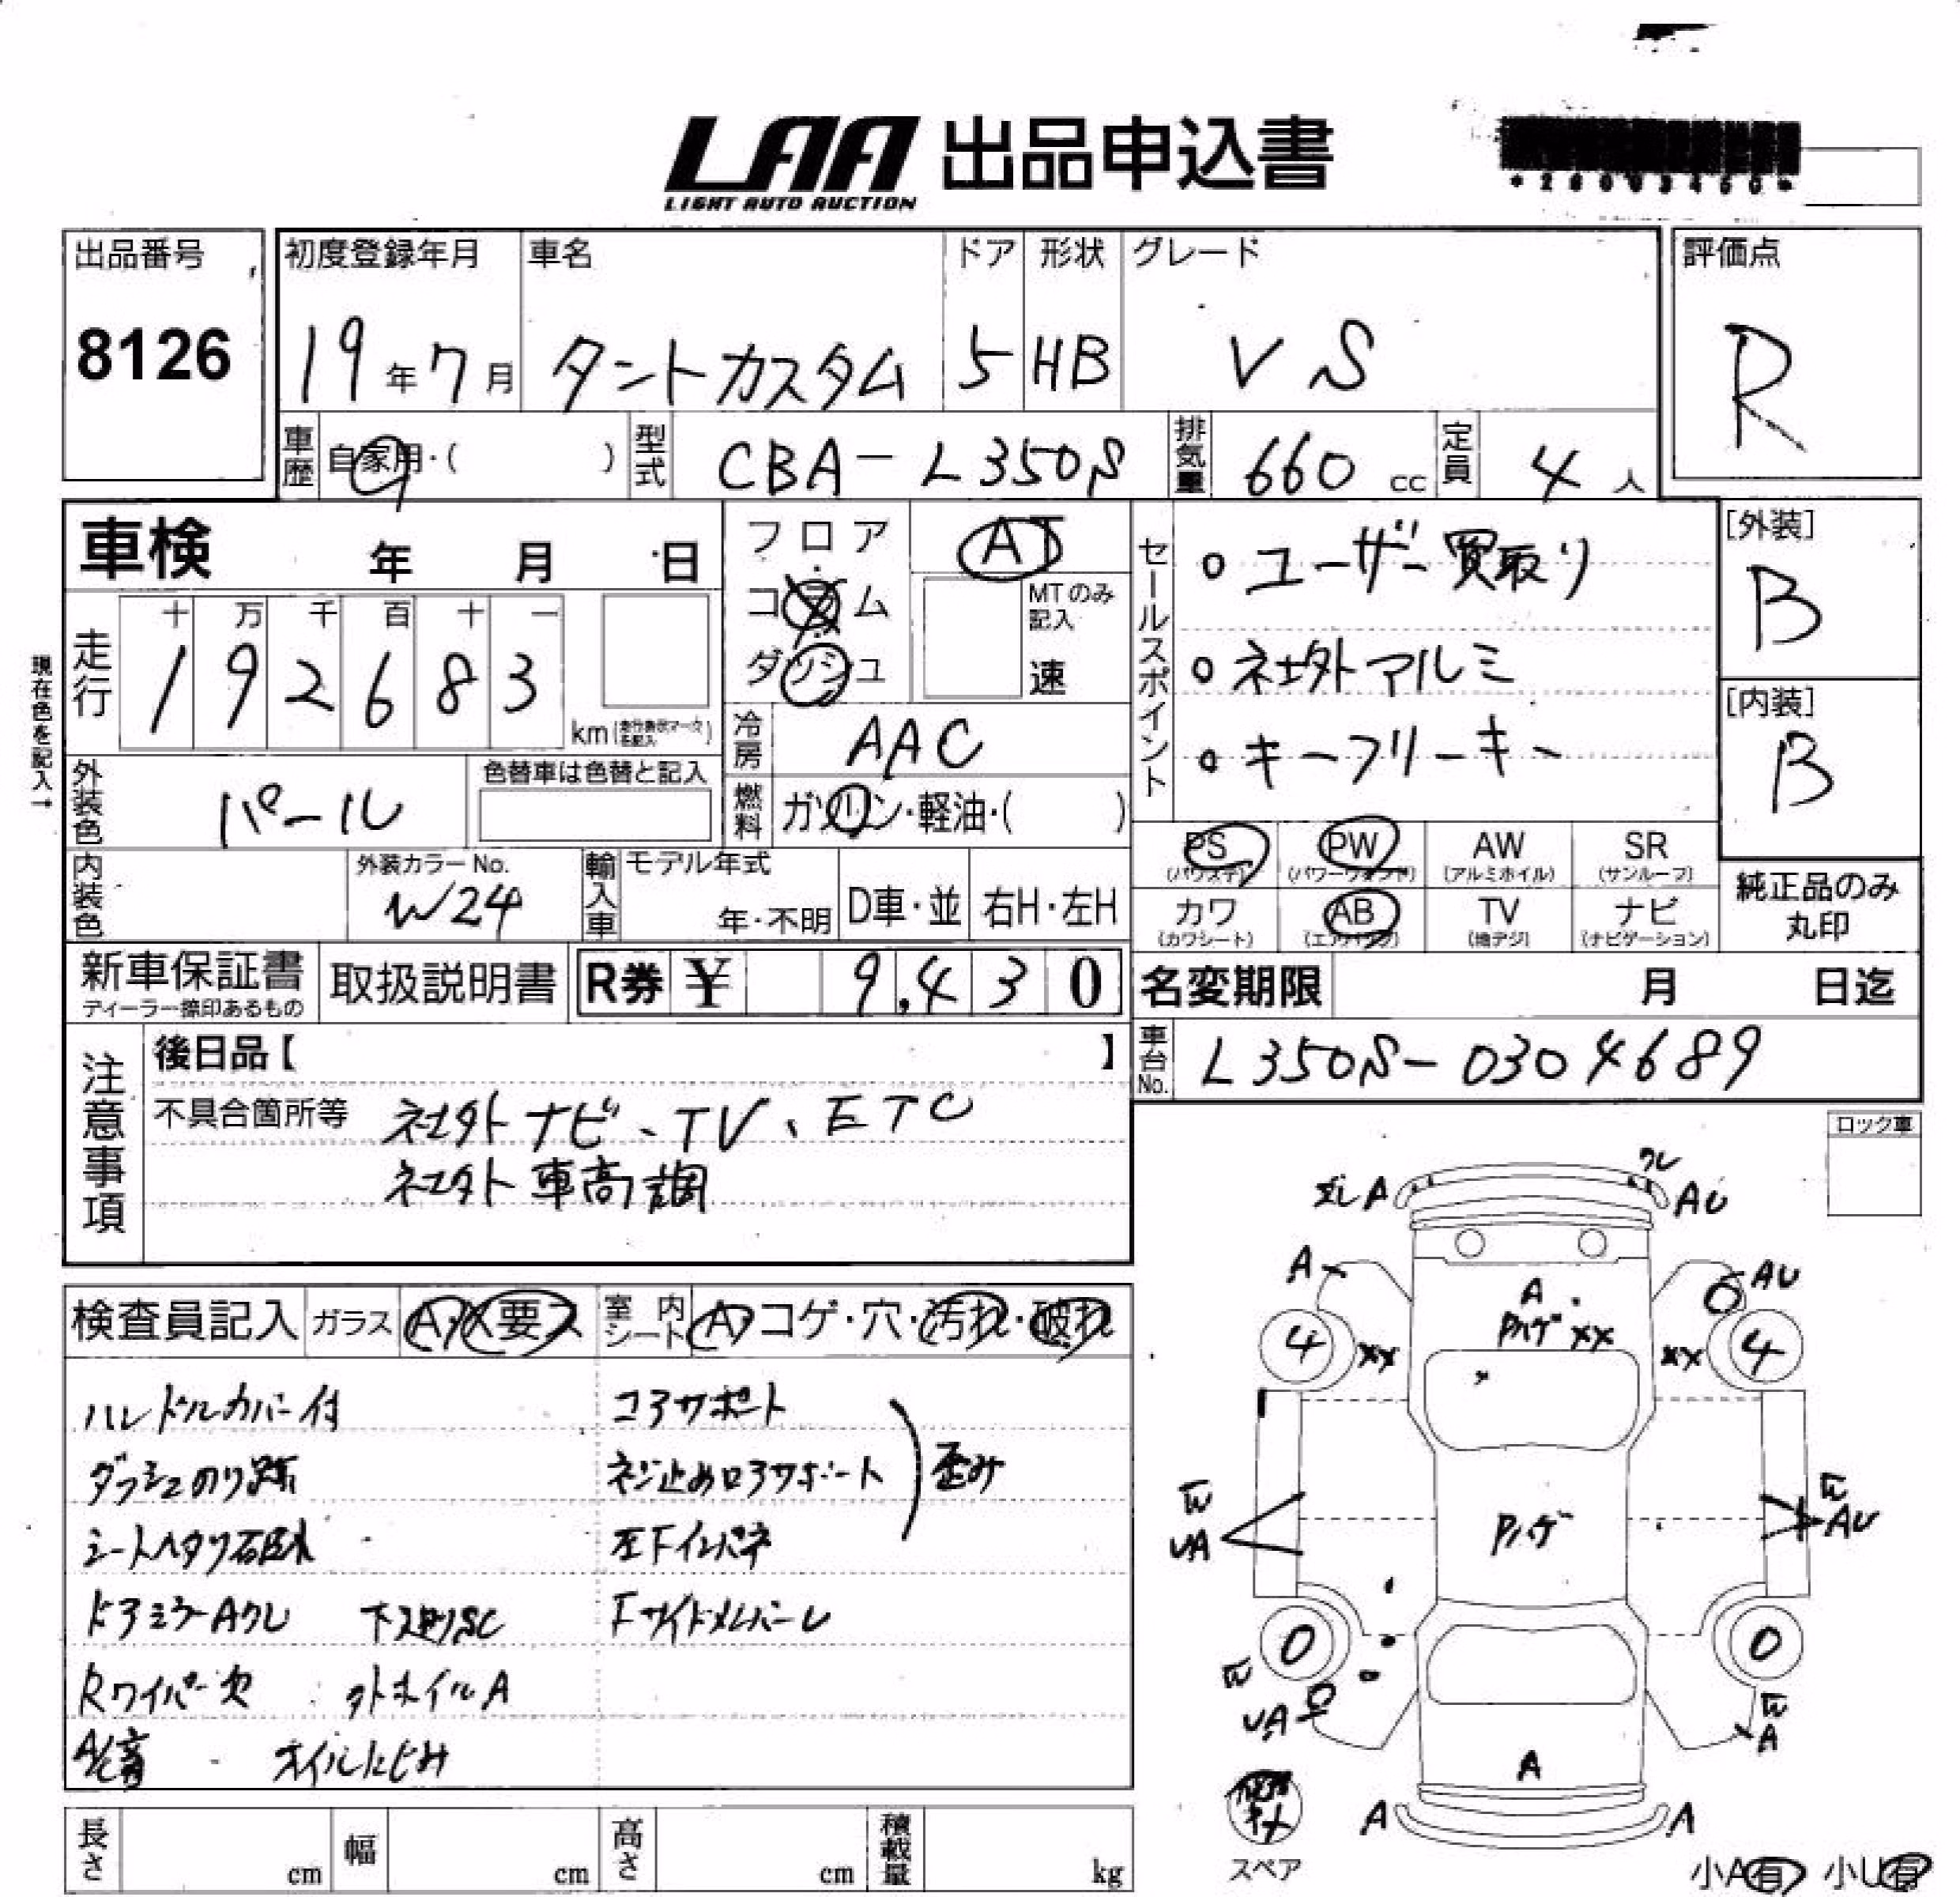 LAA 出品申込書
LIGHT AUTO AUCTION
出品番号
8126
初度登録年月
19年7月
車名
タントカスタム
ドア
5
形状
HB
グレード
VS
評価点
R
車歴 自家用・( )
型式 CBA-L350S
排気量 660 cc
定員 4人
車検 年 月 日
フロア
コラム
ダッシュ
AT
MTのみ記入
速
セールスポイント
○ユーザー買取り
○社外アルミ
○キーフリーキー
[外装]
B
[内装]
B
現在色を記入→
走行
十 万 千 百 十 一
1 9 2 6 8 3
km
冷房 AAC
外装色 パール
色替車は色替と記入
燃料 ガソリン・軽油・( )
内装色
外装カラーNo.
W24
輸入車
モデル年式
年・不明
D車・並
右H・左H
PS
(パワステ)
PW
(パワーウィンド)
AW
(アルミホイル)
SR
(サンルーフ)
カワ
(カワシート)
AB
(エアバッグ)
TV
(地デジ)
ナビ
(ナビゲーション)
純正品のみ
丸印
新車保証書
ディーラー捺印あるもの
取扱説明書
R券 ¥ 9,430
名変期限 月 日迄
車台No. L350S-0304689
注意事項
後日品【 】
不具合箇所等 社外ナビ、TV、ETC
社外車高調
ロック車
検査員記入
ガラス A・X要ス
室内シート A・コゲ・穴・汚れ・破れ
ハンドルカバー付
コアサポート
ダッシュのり跡
ネジ止めロアサポート
歪み
シートヘタリ
左Fインパネ
ドアミラーAワレ
下廻りSC
Rワイパー欠
外ホイルA
オイルにじみ
長さ cm
幅 cm
高さ cm
積載量 kg
ワレ
A
AU
A
AU
A
Pハゲ XX
4
XX
XX
4
UA
Pハゲ
AU
0
0
UA
A
A
A
A
スペア
小A有 小U有